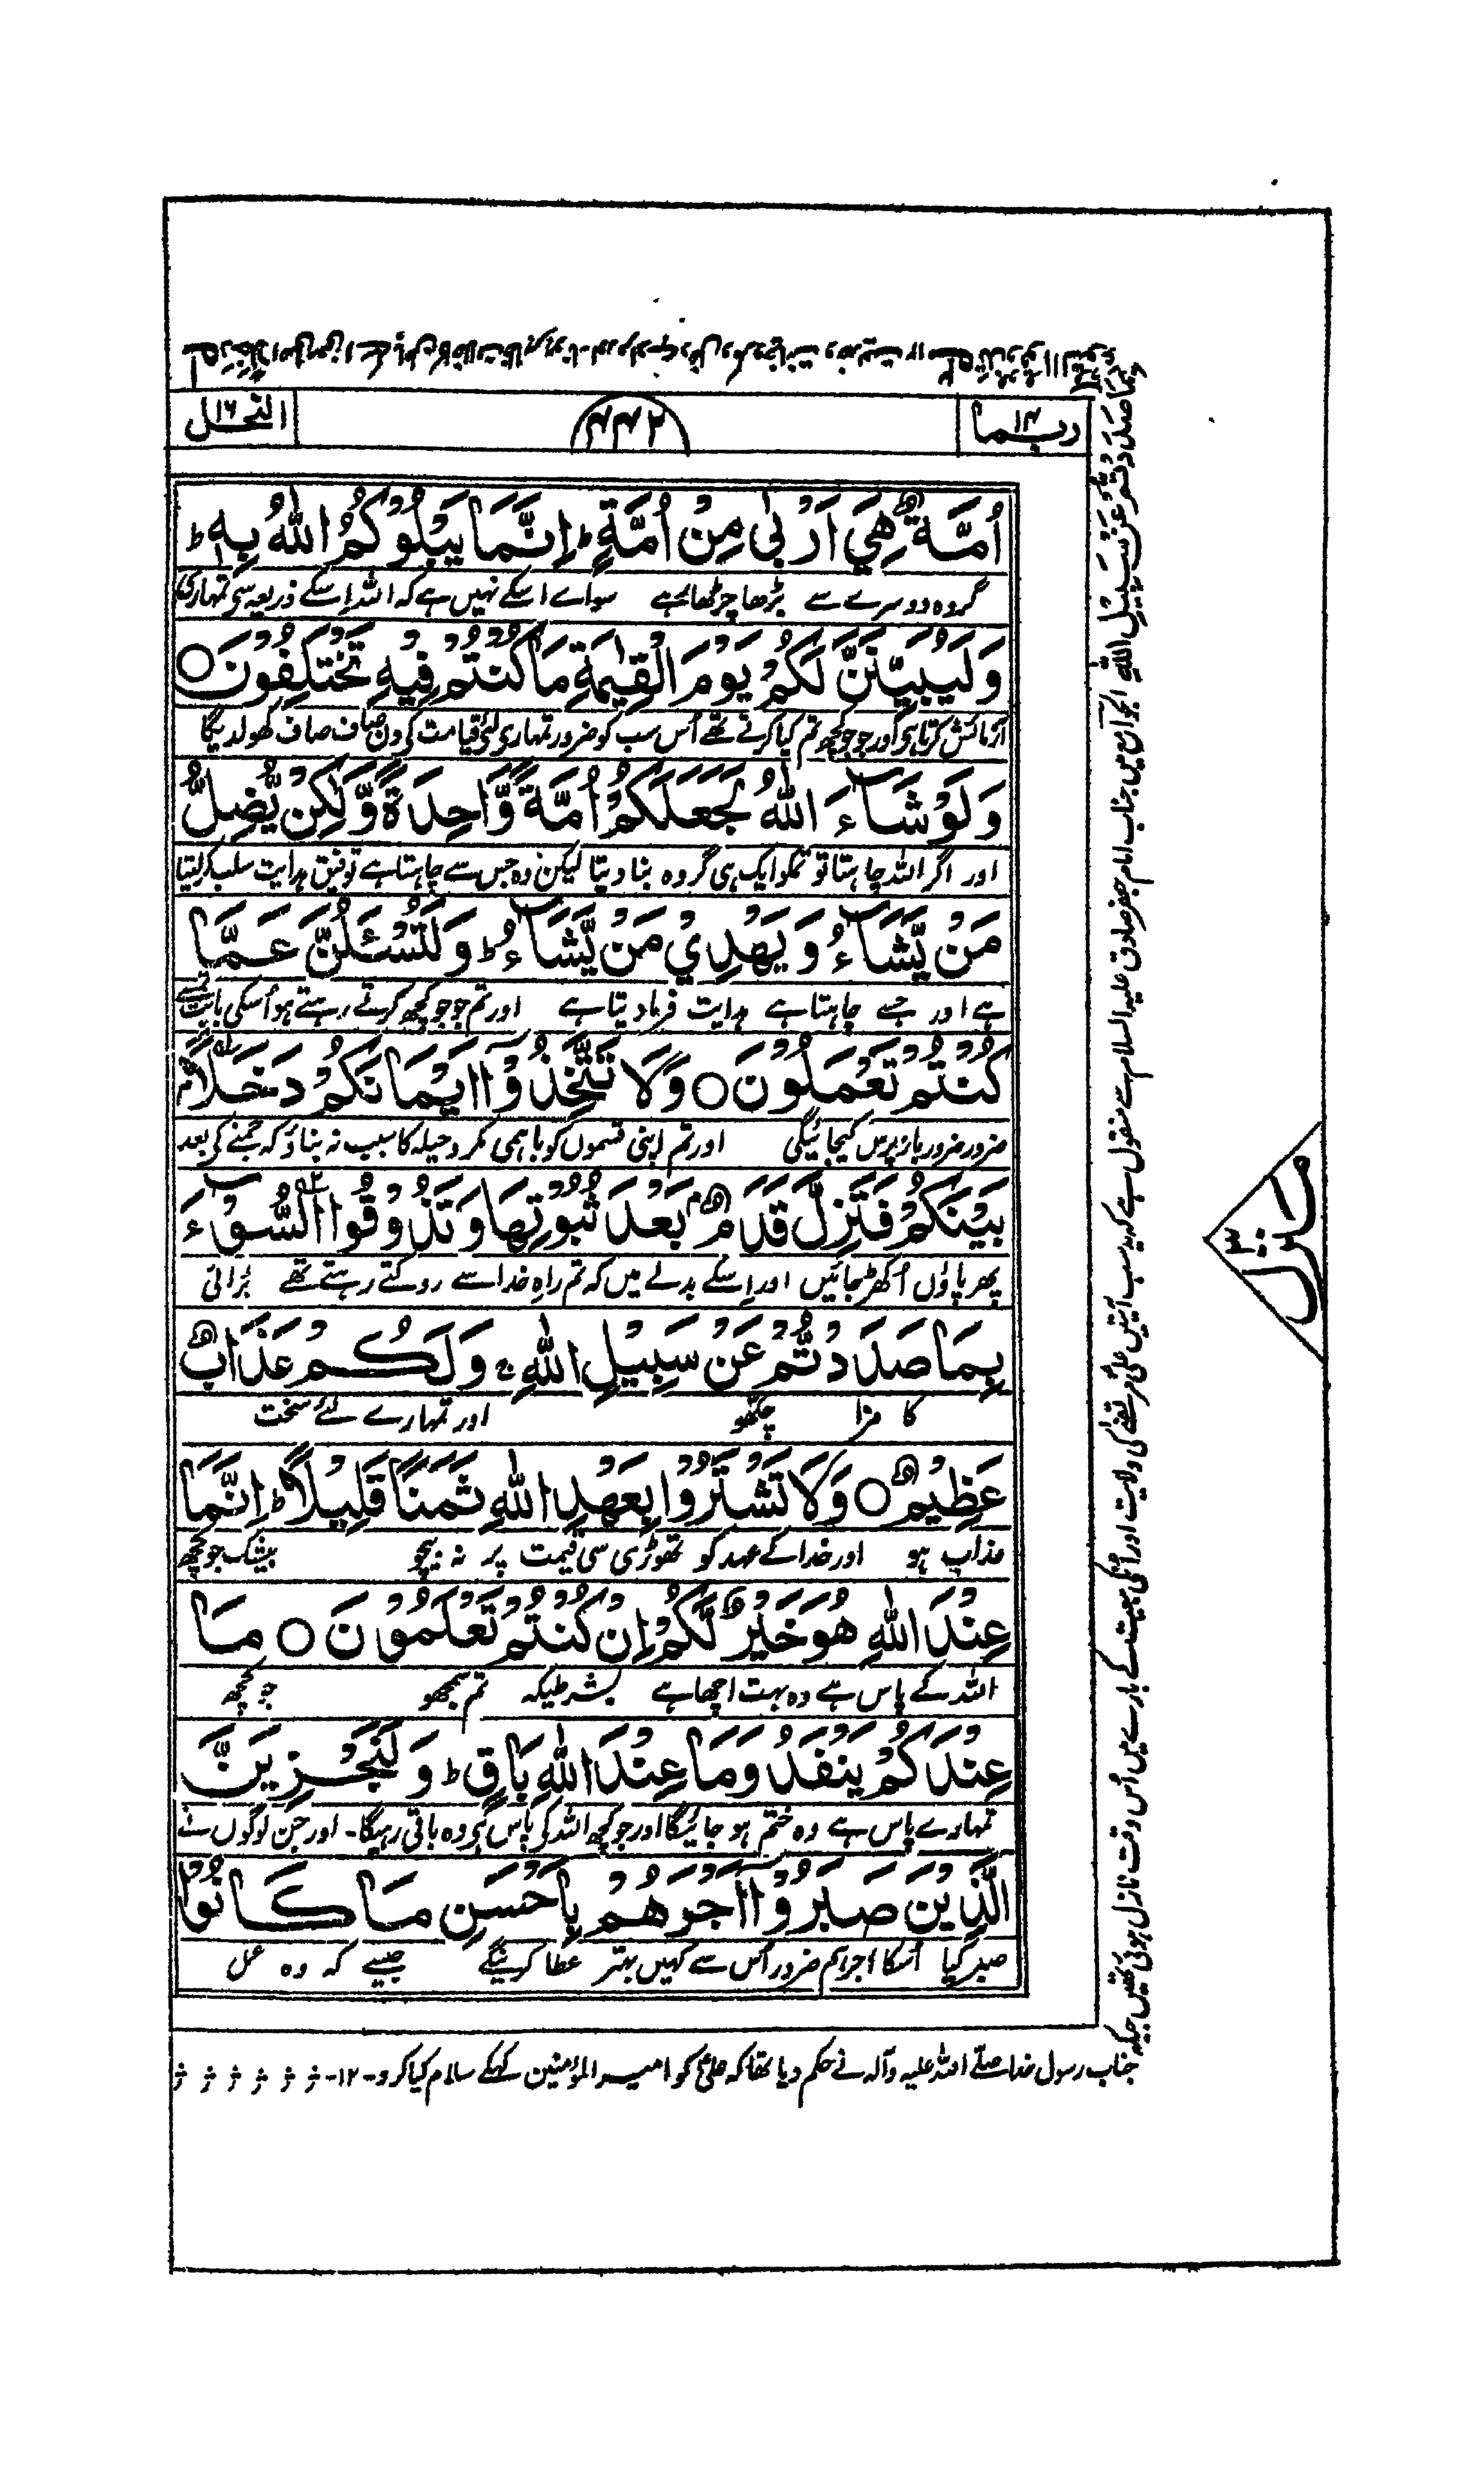 ربما ۱۴
۴۴۲
النحل ۱۶
اُمَّةٌ هِيَ اَرْبٰى مِنْ اُمَّةٍ ؕ اِنَّمَا يَبْلُوْكُمُ اللّٰهُ بِهٖ ؕ
گروہ دوسرے سے بڑھا چڑھا ہے سوائے اسکے نہیں ہے کہ اللہ اسکے ذریعہ سے تمہاری
وَلَيُبَيِّنَنَّ لَكُمْ يَوْمَ الْقِيٰمَةِ مَا كُنْتُمْ فِيْهِ تَخْتَلِفُوْنَ ○
آزمائش کرتا ہے اور جو جو کچھ تم کیا کرتے تھے اُس سب کو ضرور تمہارے لئے قیامت کے دن صاف صاف کھولدیگا
وَلَوْ شَآءَ اللّٰهُ لَجَعَلَكُمْ اُمَّةً وَّاحِدَةً وَّلٰكِنْ يُّضِلُّ
اور اگر اللہ چاہتا تو تمکو ایک ہی گروہ بنا دیتا لیکن وہ جس سے چاہتا ہے توفیق ہدایت سلب کر لیتا
مَنْ يَّشَآءُ وَيَهْدِيْ مَنْ يَّشَآءُ ؕ وَلَتُسْئَلُنَّ عَمَّا
ہے اور جسے چاہتا ہے ہدایت فرما دیتا ہے اور تم جو جو کچھ کرتے رہتے ہو اُسکی بابت تمسے
كُنْتُمْ تَعْمَلُوْنَ ○ وَلَا تَتَّخِذُوْٓا اَيْمَانَكُمْ دَخَلًاۢ
ضرور ضرور باز پرس کیجائیگی اور تم اپنی قسموں کو باہمی مکر و حیلہ کا سبب نہ بناؤ کہ جمنے کے بعد
بَيْنَكُمْ فَتَزِلَّ قَدَمٌۢ بَعْدَ ثُبُوْتِهَا وَتَذُوْقُوا السُّوْٓءَ
پھر پاؤں اُکھڑ جائیں اور اسکے بدلے میں کہ تم راہِ خدا سے روکتے رہتے تھے بُرائی
بِمَا صَدَدْتُّمْ عَنْ سَبِيْلِ اللّٰهِ ۚ وَلَكُمْ عَذَابٌ
کا مزا چکھو اور تمہارے لئے سخت
عَظِيْمٌ ○ وَلَا تَشْتَرُوْا بِعَهْدِ اللّٰهِ ثَمَنًا قَلِيْلًا ؕ اِنَّمَا
عذاب ہو اور خدا کے عہد کو تھوڑی سی قیمت پر نہ بیچو بیشک جو کچھ
عِنْدَ اللّٰهِ هُوَ خَيْرٌ لَّكُمْ اِنْ كُنْتُمْ تَعْلَمُوْنَ ○ مَا
اللہ کے پاس ہے وہ بہت اچھا ہے بشرطیکہ تم سمجھو جو کچھ
عِنْدَكُمْ يَنْفَدُ وَمَا عِنْدَ اللّٰهِ بَاقٍ ؕ وَلَنَجْزِيَنَّ
تمہارے پاس ہے وہ ختم ہو جائیگا اور جو کچھ اللہ کے پاس ہے وہ باقی رہیگا۔ اور جن لوگوں نے
الَّذِيْنَ صَبَرُوْٓا اَجْرَهُمْ بِاَحْسَنِ مَا كَانُوْا
صبر کیا اُنکا اجر ہم ضرور اُس سے کہیں بہتر عطا کرینگے جیسے کہ وہ عمل
بِمَا صَدَدْتُّمْ عَنْ سَبِيْلِ اللّٰهِ الجوامع میں جناب امام جعفر صادق علیہ السلام سے منقول ہے کہ یہ سب آیتیں علی مرتضےٰ کی ولایت اور اُنکی بیعت کے بارے میں اُس وقت نازل ہوئی تھیں جبکہ
جناب رسول خدا صلے اللہ علیہ وآلہ نے حکم دیا تھا کہ علی کو امیر المومنین کہکے سلام کیا کرو۔ ۱۲
منزل ۳